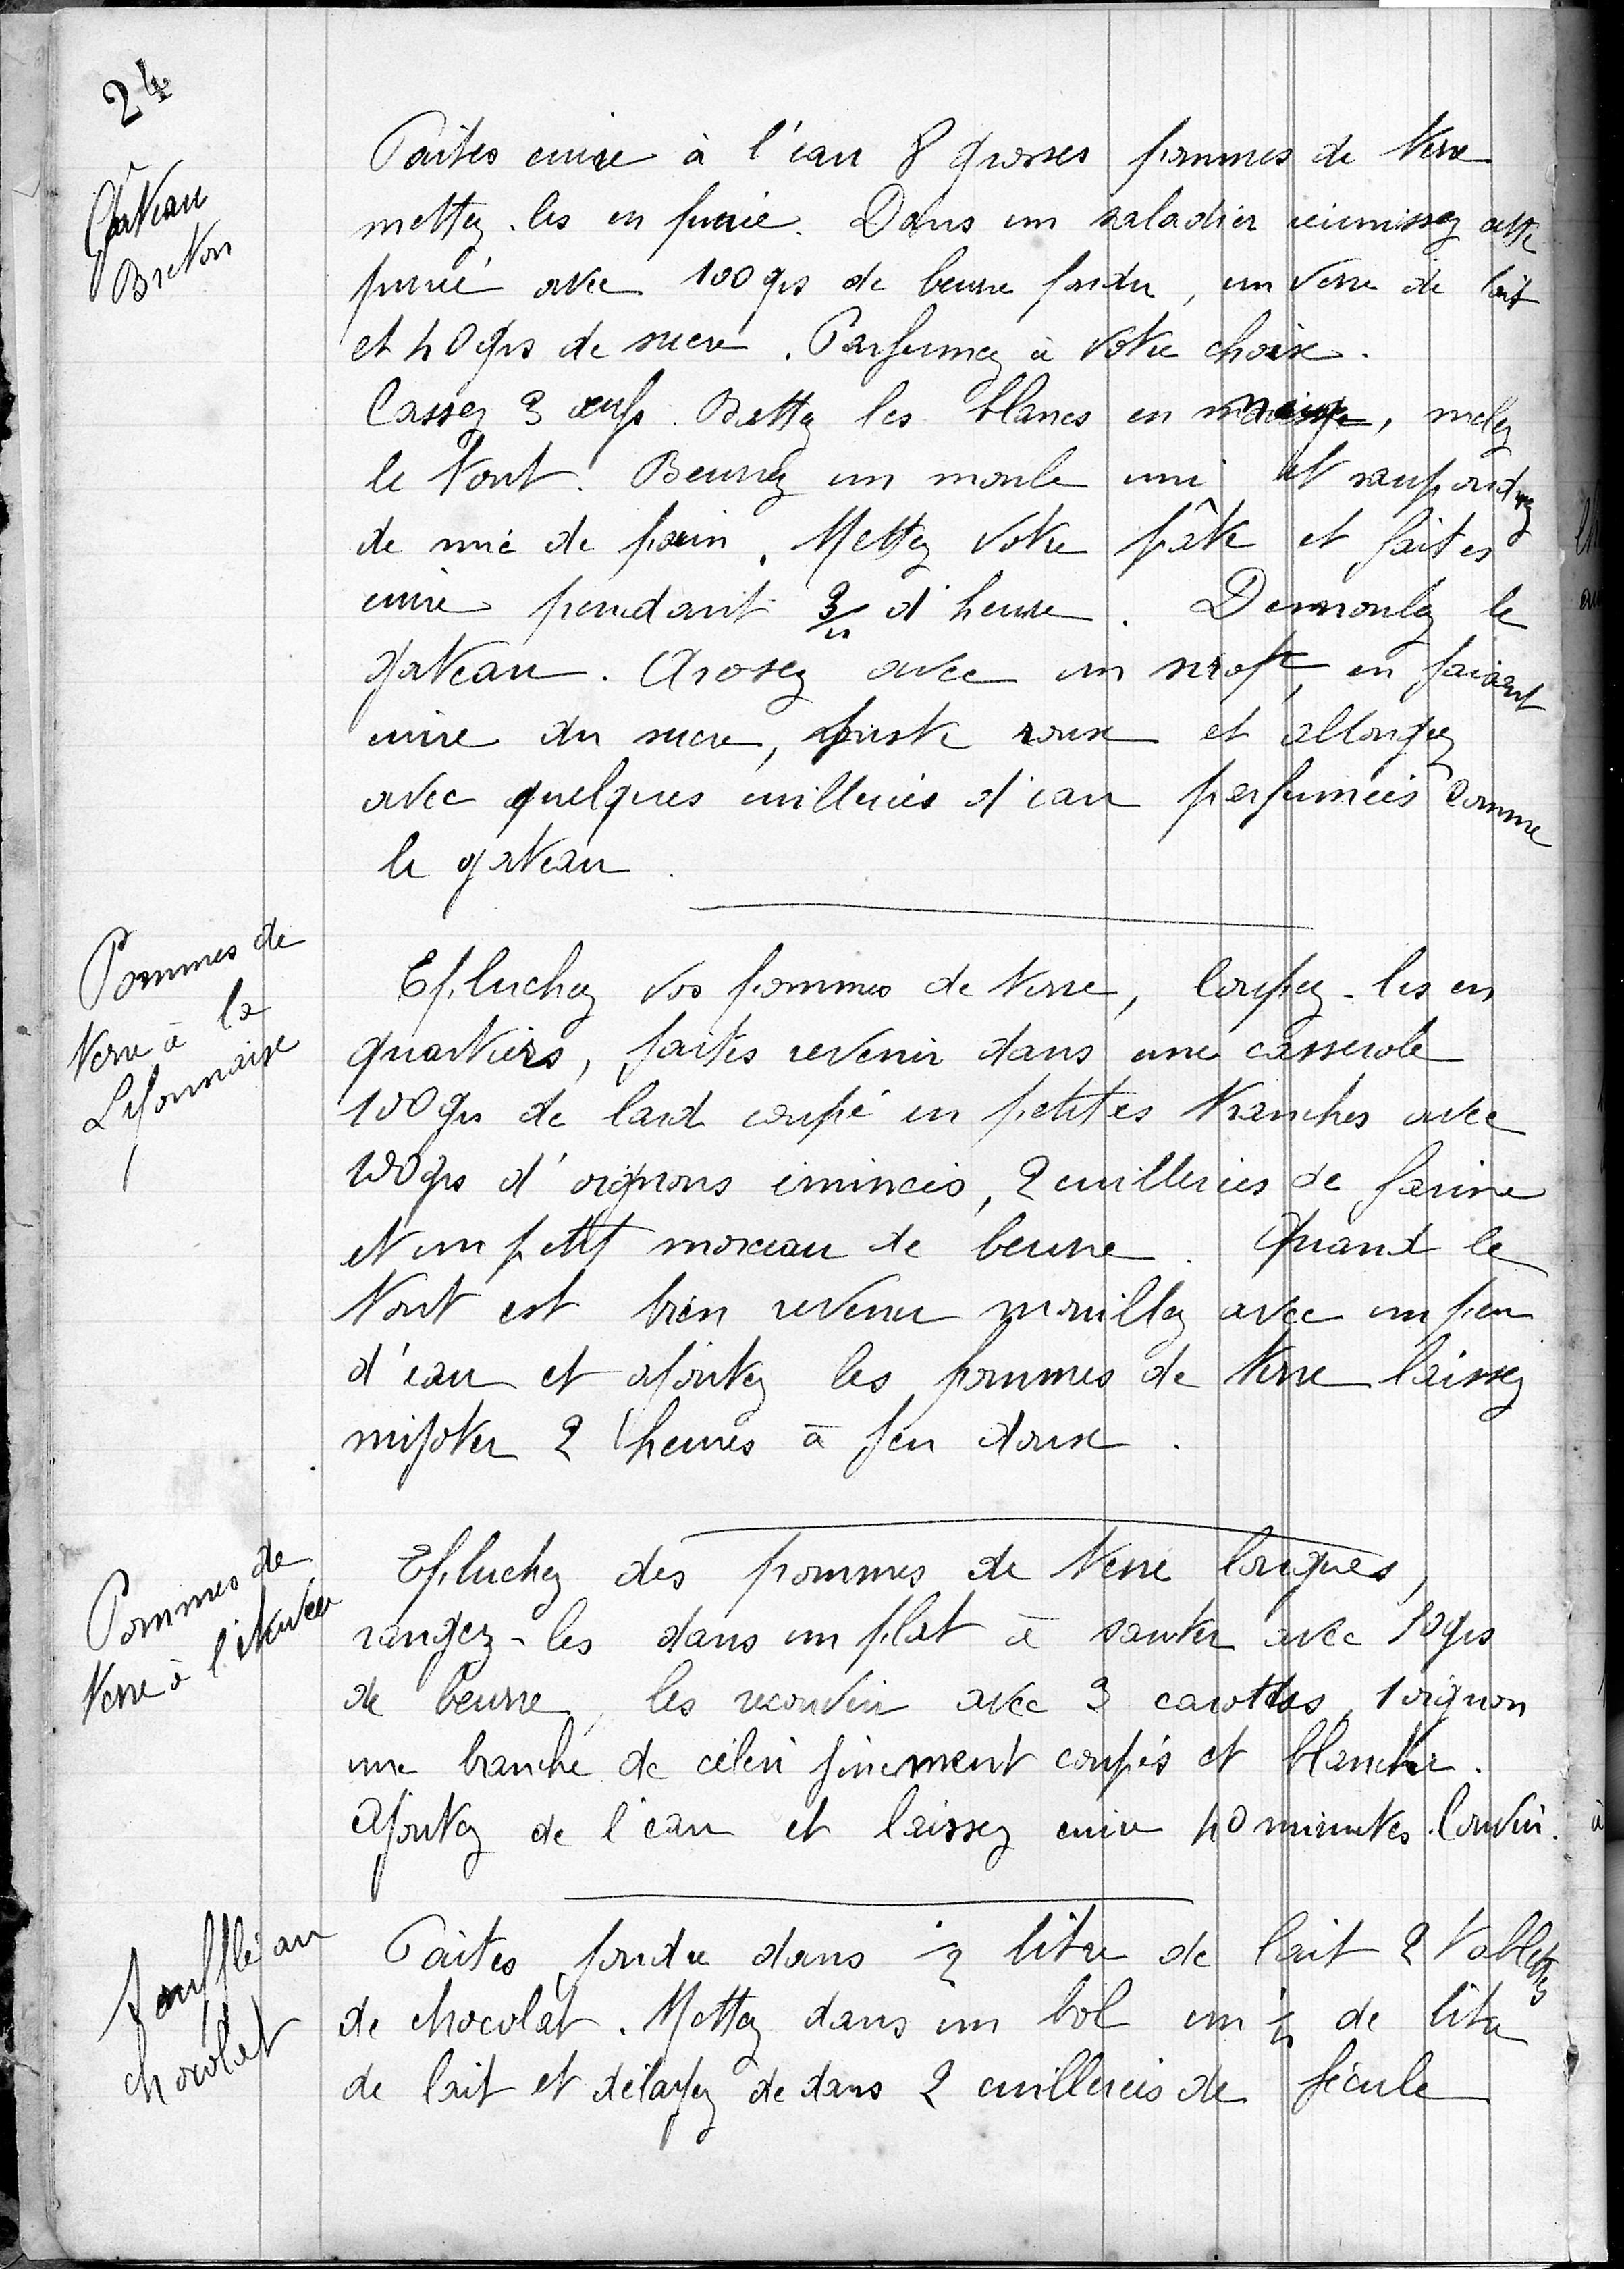 24
Gâteau
Breton
Faites cuire à l'eau 8 grosses pommes de terre
mettez-les en purée. Dans un saladier réunissez cette
purée avec 100 grs de beurre fondu, un verre de lait
et 40 grs de sucre. Parfumez à votre choix.
Cassez 3 œufs. Battez les blancs en neige, melez
le tout. Beurrez un moule uni et saupoudrez
de mie de pain. Mettez votre pâte et faites
cuire pendant 3/4 d'heure. Demoulez le
gateau. Arosez avec un sirop, en faisant
cuire du sucre, juste roux et allongez
avec quelques cuillerées d'eau parfumées comme
le gateau.
Pommes de
terre à la
Lyonnaise
Epluchez vos pommes de terre, coupez-les en
quartiers, faites revenir dans une casserole
100 grs de lard coupé en petites tranches avec
100 grs d'oignons émincés, 2 cuillerées de farine
et un petit morceau de beurre. Quand le
tout est bien revenu mouillez avec un peu
d'eau et ajoutez les pommes de terre laissez
mijoter 2 heures à feu doux.
Pommes de
terre à l'étuvée
Epluchez des pommes de terre longues,
rangez-les dans un plat à sauter avec 50 grs
de beurre, les recouvrir avec 3 carottes, 1 oignon
une branche de céleri finement coupés et blanchir.
Ajoutez de l'eau et laissez cuire 40 minutes. Couvrir.
Soufflé au
chocolat
Faites fondre dans 1/2 litre de lait 2 tablettes
de chocolat. Mettez dans un bol un 1/4 de litre
de lait et délayez dedans 2 cuillerées de fécule